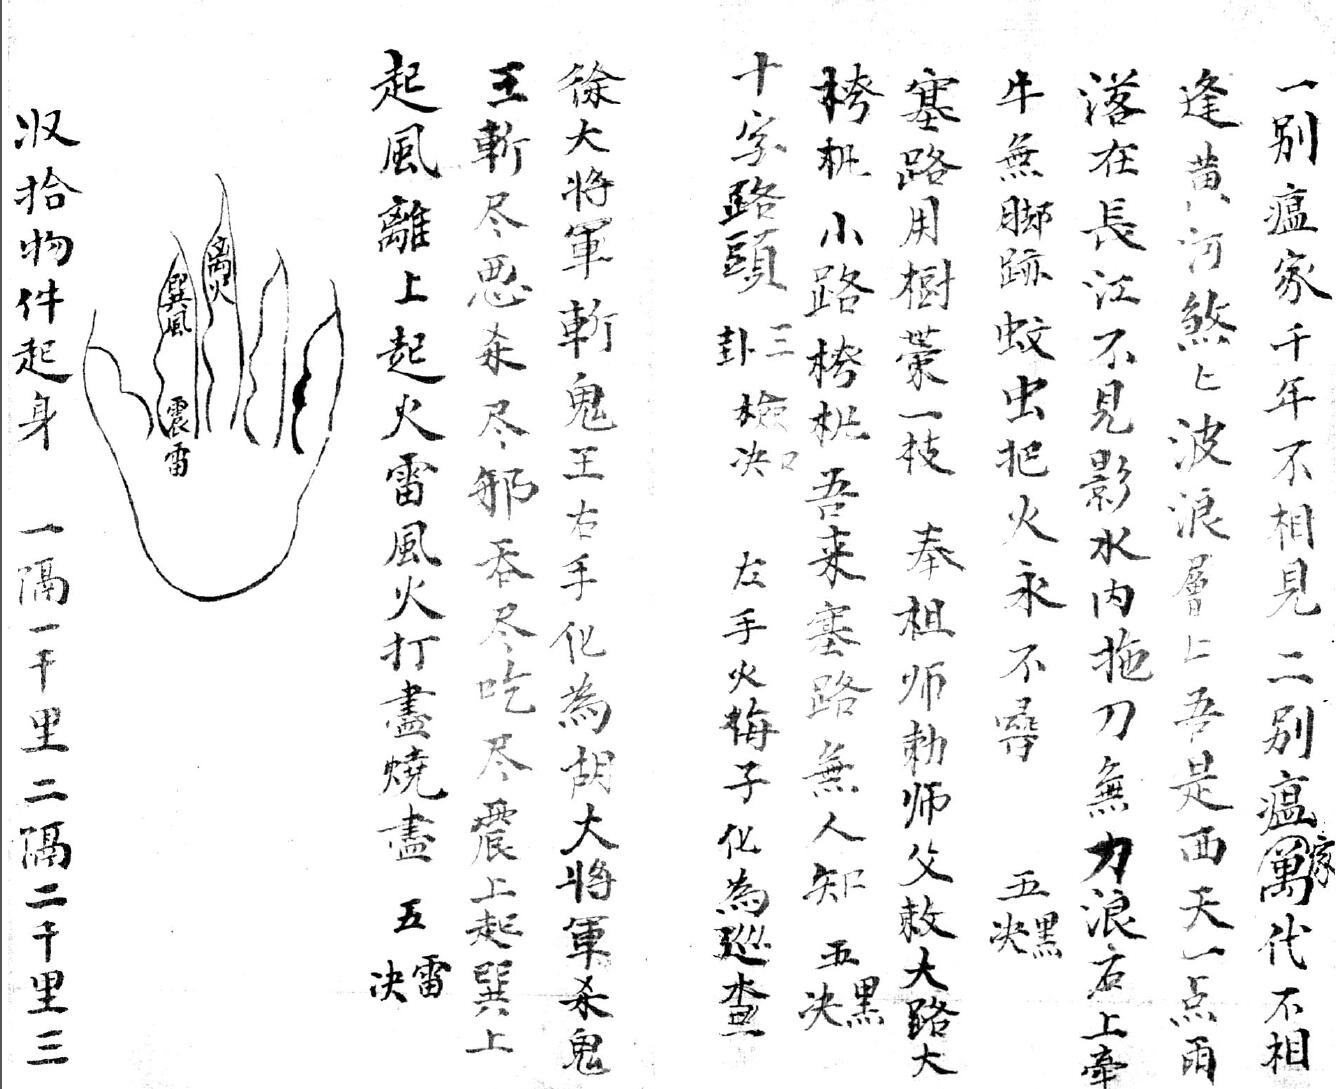 一别瘟家千年不相見二别瘟家萬代不相
逢黄河煞匕波浪層匕吾是西天一点雨
落在長江不見影水内拖刀無力浪石上牽
牛無脚跡蚊虫把火永不尋 五黑决
塞路用樹藁一枝 奉祖师勅师父敕大路大
桍枇小路桍枇吾来塞路無人知 五黑决
十字路頭三卦檢口决 左手火梅子化為巡查
徐大将軍斬鬼王右手化為胡大将軍杀鬼
王斬尽恶杀尽邪吞尽吃尽震上起巽上
起風離上起火雷風火打盡燒盡 五雷决
離火
巽風
震雷
収拾物件起身 一隔一千里二隔二千里三